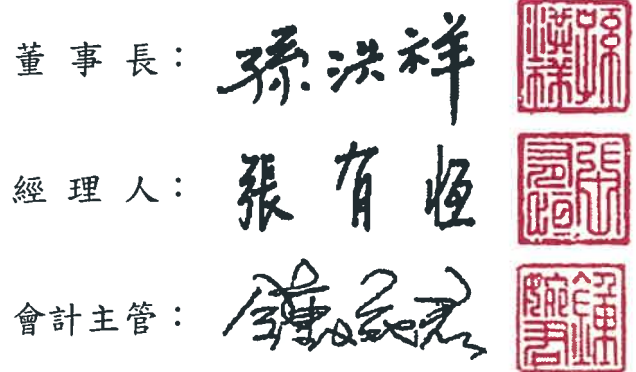 董事長：孫洪祥 孫洪祥
經理人：張有恒 張有恒
會計主管：鍾婉君 鍾婉君